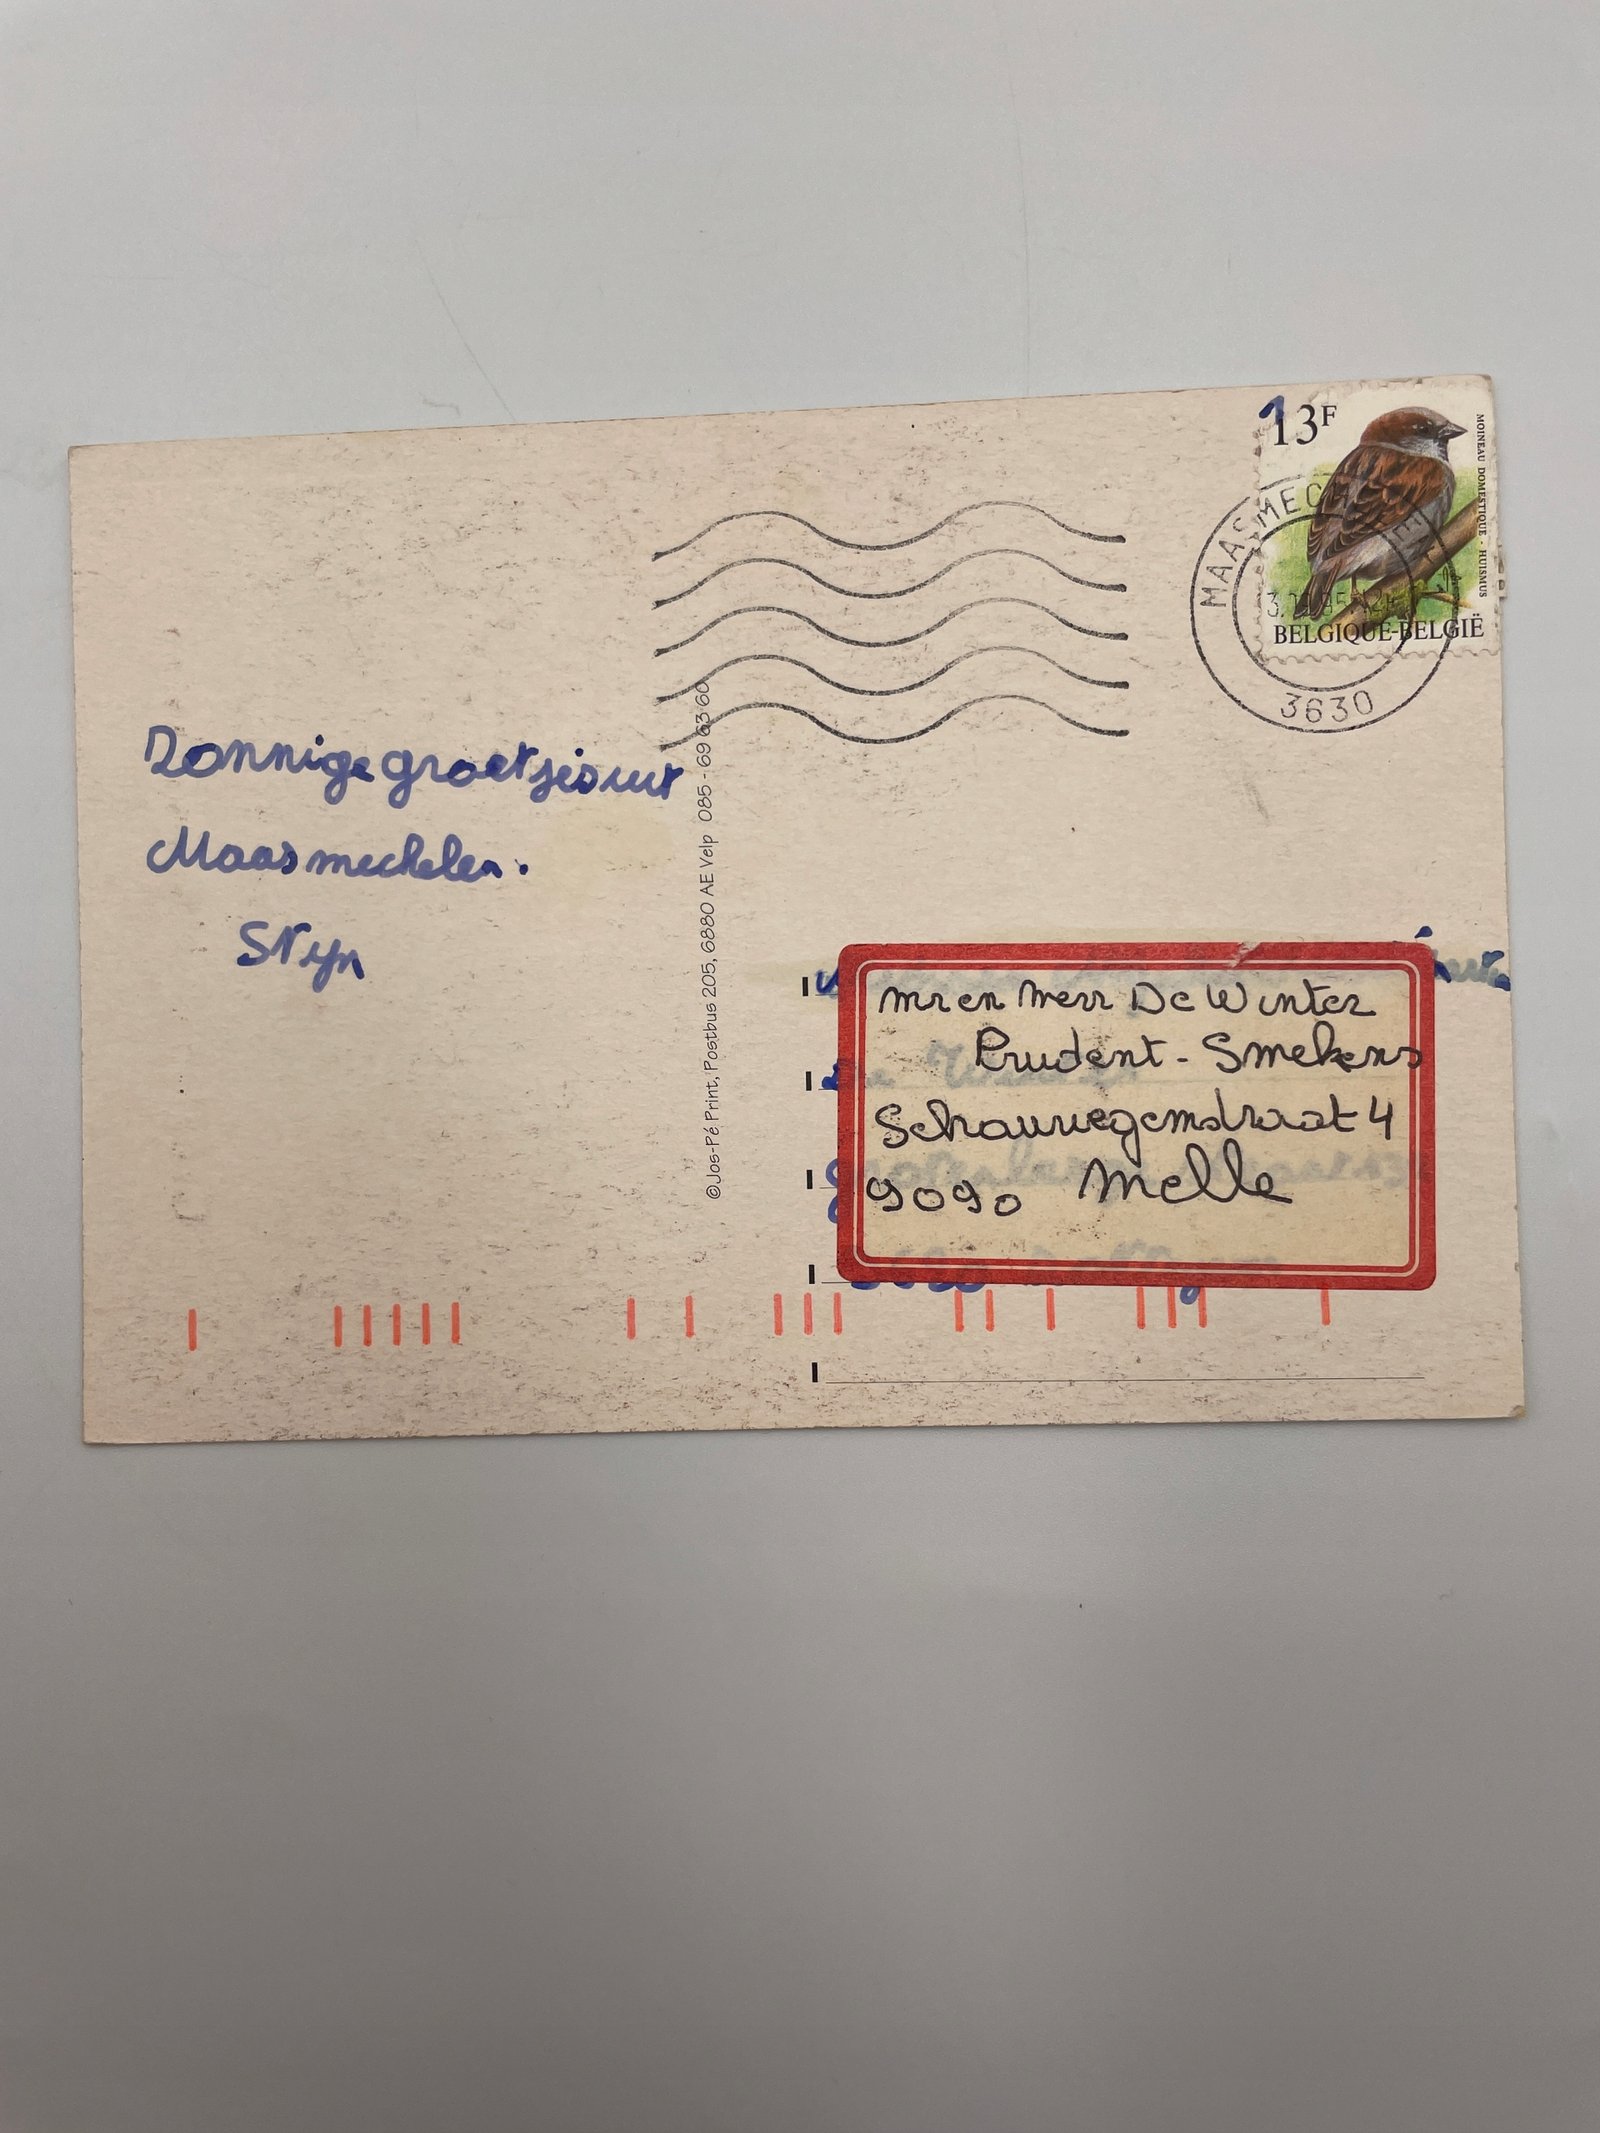 13F
MOINEAU DOMESTIQUE - HUISMUS
BELGIQUE-BELGIË
MAASMECH
3630
Zonnige groetjes uit
Maasmechelen.
Stijn
©Jos-Pé Print, Postbus 205, 6880 AE Velp 085-69 63 60
mr en mevr De Winter
Prudent - Smekens
Schauwegemstraat 4
9090 Melle